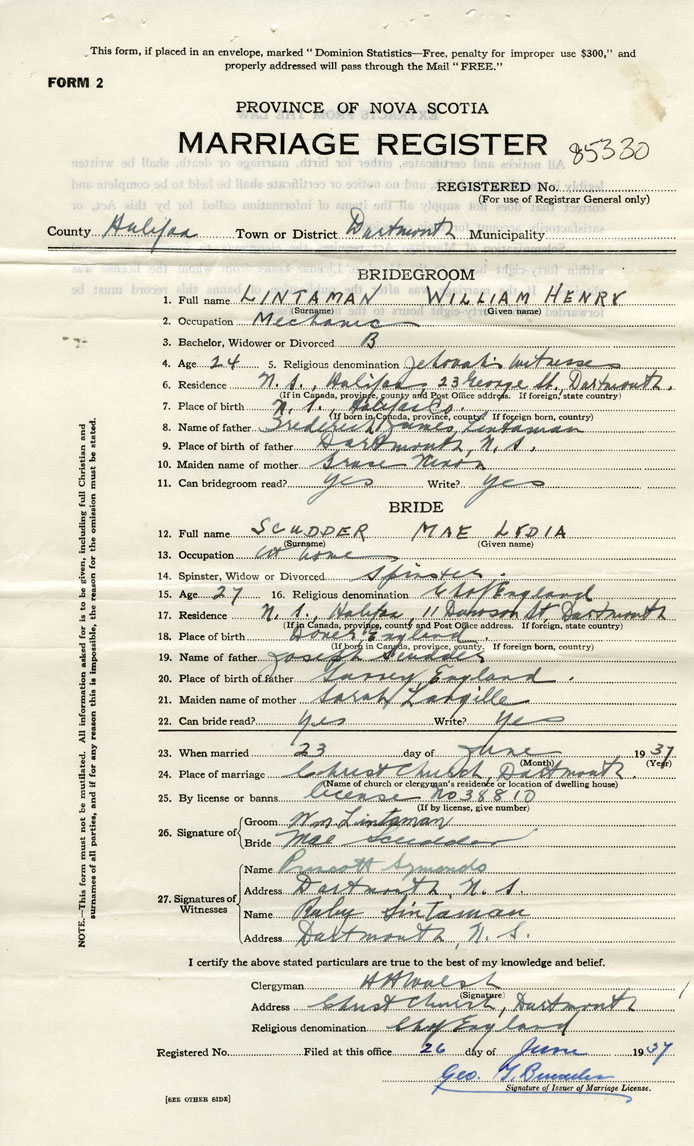 This form, if placed in an envelope, marked "Dominion Statistics—Free, penalty for improper use $300," and
properly addressed will pass through the Mail "FREE."
FORM 2
PROVINCE OF NOVA SCOTIA
MARRIAGE REGISTER 85330
REGISTERED No.
(For use of Registrar General only)
County Halifax Town or District Dartmouth Municipality
BRIDEGROOM
1. Full name LINTAMAN WILLIAM HENRY
(Surname) (Given name)
2. Occupation Mechanic
3. Bachelor, Widower or Divorced B
4. Age 24 5. Religious denomination Jehovah's Witnesses
6. Residence N. S., Halifax, 23 George St. Dartmouth.
(If in Canada, province, county and Post Office address. If foreign, state country)
7. Place of birth N. S., Halifax Co.
(If born in Canada, province, county. If foreign born, country)
8. Name of father Frederick James Lintaman
9. Place of birth of father Dartmouth, N. S.
10. Maiden name of mother Grace Nixon
11. Can bridegroom read? yes Write? yes
BRIDE
12. Full name SCUDDER MAE LYDIA
(Surname) (Given name)
13. Occupation at home
14. Spinster, Widow or Divorced Spinster.
15. Age 27 16. Religious denomination Ch of England
17. Residence N. S., Halifax, 11 Dawson St, Dartmouth
(If in Canada, province, county and Post Office address. If foreign, state country)
18. Place of birth Dover England
(If born in Canada, province, county. If foreign born, country)
19. Name of father Joseph Scudder
20. Place of birth of father England.
21. Maiden name of mother Sarah Langille
22. Can bride read? yes Write? yes
23. When married 23 day of June 1937
(Month) (Year)
24. Place of marriage Christ Church, Dartmouth.
(Name of church or clergyman's residence or location of dwelling house)
25. By license or banns license No 38810
(If by license, give number)
26. Signature of Groom Wm. Lintaman
Bride Mae Scudder
27. Signatures of Witnesses
Name Prescott Symonds
Address Dartmouth, N. S.
Name Ruby Lintaman
Address Dartmouth, N. S.
I certify the above stated particulars are true to the best of my knowledge and belief.
Clergyman H H Walsh
(Signature)
Address Christ Church, Dartmouth
Religious denomination Ch of England
Registered No. Filed at this office 26 day of June 1937
Geo.
Signature of Issuer of Marriage License.
[SEE OTHER SIDE]
NOTE.—This form must not be mutilated. All information asked for is to be given, including full Christian and
surnames of all parties, and if for any reason this is impossible, the reason for the omission must be stated.